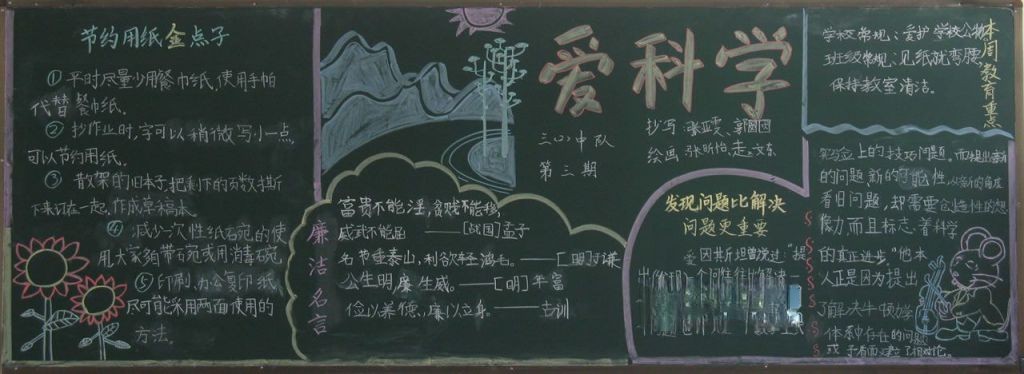 节约用纸金点子
① 平时尽量少用餐巾纸,使用手帕
代替餐巾纸.
② 抄作业时,字可以稍微写小一点
可以节约用纸.
③ 散架的旧本子,把剩下的页数撕
下来订在一起,作成草稿本.
④ 减少一次性纸石宛的使
用,大家多带石宛或用消毒石宛.
⑤ 印刷、办公复印纸
尽可能采用两面使用的
方法.
爱科学
三(2)中队
第三期
抄写:张亚雯、郭囡囡
绘画:张昕怡、走、文东
廉洁名言
富贵不能淫,贫贱不能移,
威武不能屈 ——[战国]孟子
名节重泰山,利欲轻鸿毛.——[明]于谦
公生明,廉生威.——[明]年富
俭以养德、廉以立身.——古训
本周教育重点
学校常规:爱护学校公物
班级常规:见纸就弯腰
保持教室清洁.
发现问题比解决
问题更重要
爱因斯坦曾说过"提
出(发现)一个问题往往比解决一
实验上的技巧问题.而提出新
的问题,新的可能性,从新的角度
看旧问题,却需要创造性的想
像力,而且标志着科学
的真正进步,"他本
人正是因为提出
了解决牛顿力学
体系中存在的问题
或 矛盾而建立了相对论.